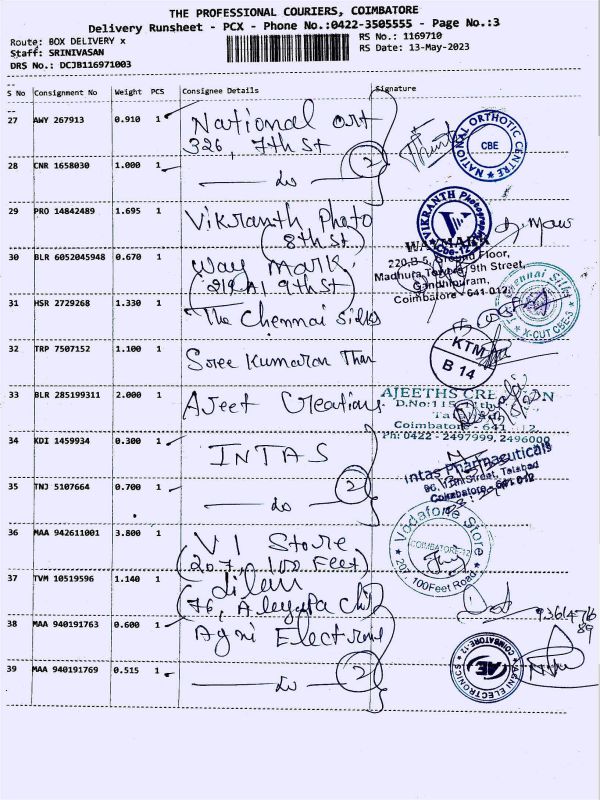 THE PROFESSIONAL COURIERS, COIMBATORE
Delivery Runsheet - PCX - Phone No.:0422-3505555 - Page No.:3
Route: BOX DELIVERY x
RS No.: 1169710
Staff: SRINIVASAN
RS Date: 13-May-2023
DRS No.: DCJB116971003
S No Consignment No Weight PCS Consignee Details Signature
27 AWY 267913 0.910 1 National ort
326, 7th St
NATIONAL ORTHOTIC CENTRE
CBE
28 CNR 1658030 1.000 1 do 2
29 PRO 14842489 1.695 1 Vikranth Photo
(8th St)
VIKRANTH Photography
Cbe-12
30 BLR 6052045948 0.670 1 Way Mark,
9th St)
WAYMARK
220,B-5, Ground Floor,
Madhura Towers, 9th Street,
Gandhipuram,
Coimbatore - 641 012
31 HSR 2729268 1.330 1 The Chennai Silks
Chennai Silks
X-CUT CBE-3
32 TRP 7507152 1.100 1 Sree Kumaran Than
KTM
B 14
33 BLR 285199311 2.000 1 Ajeet Creations
AJEETHS CREATION
D.No:115
Coimbatore - 641 012
Ph: 0422 - 2497999, 2496000
34 KDI 1459934 0.300 1 INTAS
Intas Pharmaceuticals
Street, Tatabad
Coimbatore - 641 012
35 TNJ 5107664 0.700 1 do 2
36 MAA 942611001 3.800 1 VI Store
(207, 100 Feet)
Vodafone Store
COIMBATORE-12
207, 100Feet Road
37 TVM 10519596 1.140 1
(76,
38 MAA 940191763 0.600 1 Agni Electronic
9361476
89
39 MAA 940191769 0.515 1 do 2
COIMBATORE-12
AGNI ELECTRONICS
AE